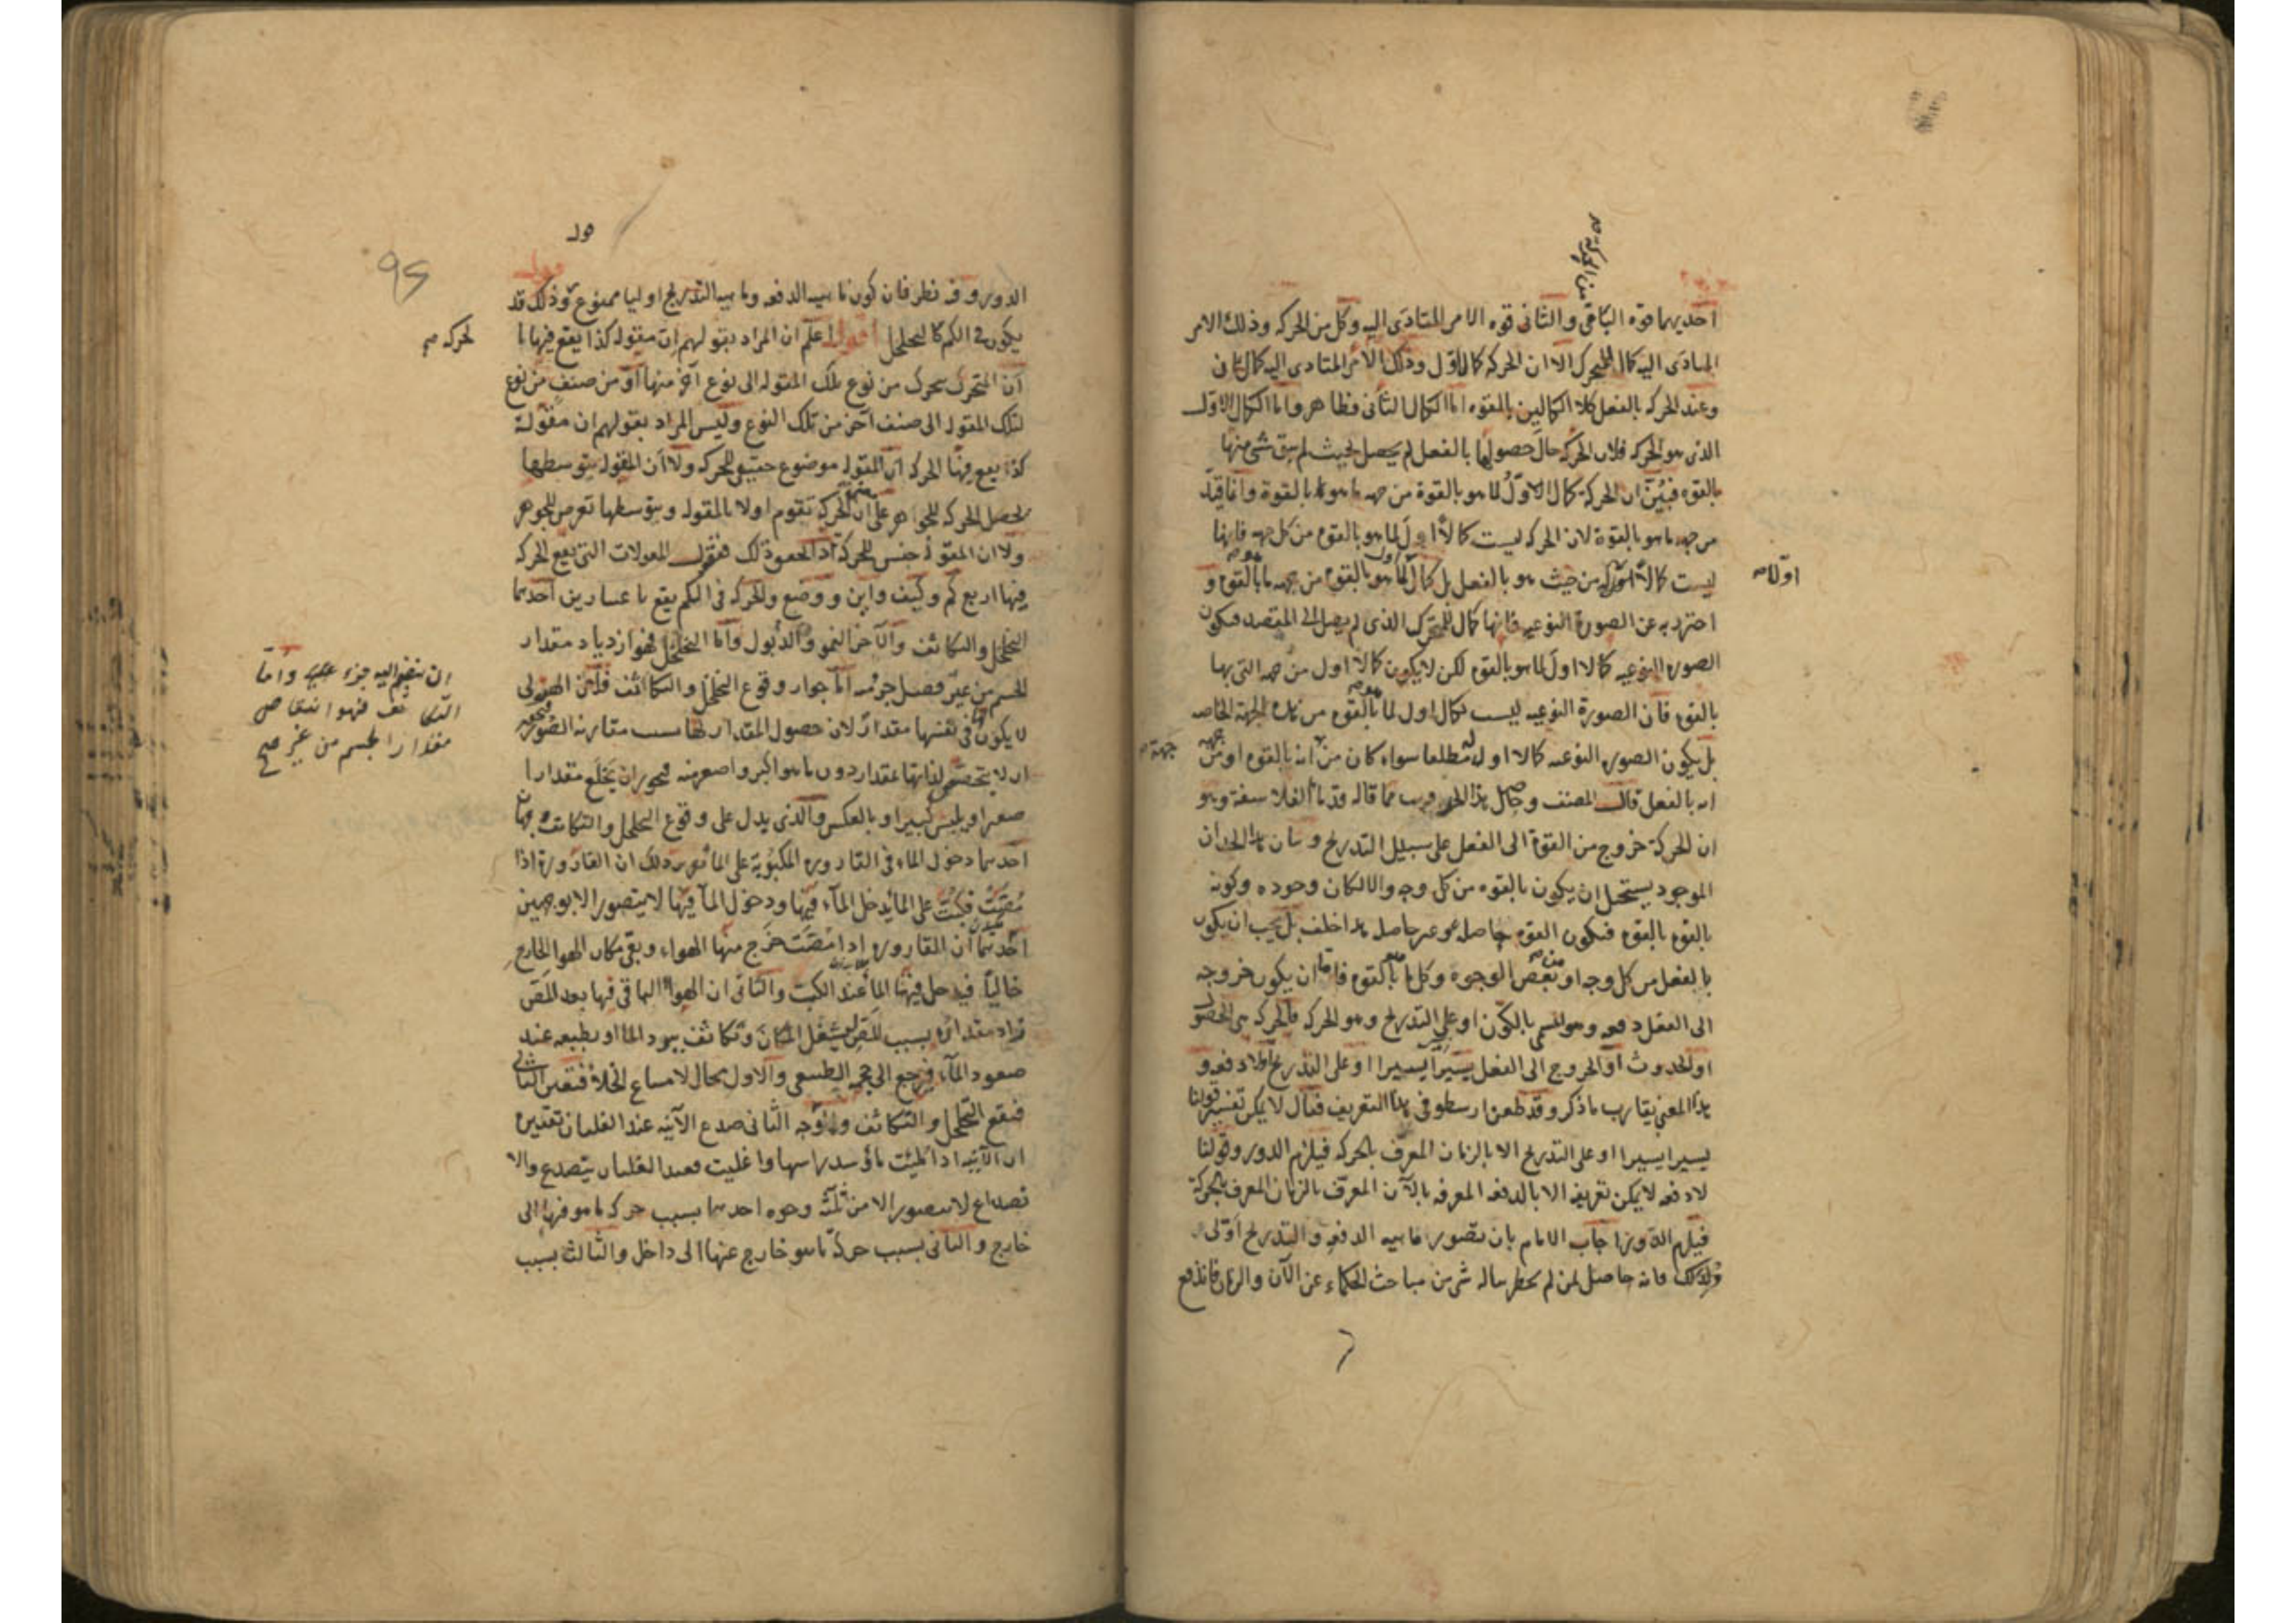 من الحركة صح
احديهما قوة الباقى والثانى قوة الامر المتادى اليه وكل من الحركة وذلك الامر
المتادى اليه كمال للمتحرك الا ان الحركة كمال اول وذلك الامر المتادى اليه كمال ثانى
وعند الحركة بالفعل كلا الكمالين بالقوة اما الكمال الثانى فظاهر واما الكمال الاول
الذى هو الحركة فلان الحركة حال حصولها بالفعل لم يحصل بحيث لم يبق شى منها
بالقوة فبين ان الحركة كمال الاول لما هو بالقوة من جهة ما هو بالقوة وانما قيد
من جهة ما هو بالقوة لان الحركة ليست كمالا اول لما هو بالقوة من كل جهة فانها
ليست كمالا من حيث هو بالفعل بل كمال اول لما هو بالقوة من جهة ما هو بالقوة و
اولا صح
احترز به عن الصورة النوعية فانها كمال للمتحرك الذى لم يصل الى المقصد فيكون
الصورة النوعية كمالا اول لما هو بالقوة لكن لا يكون كمالا اول من جهة التى بها
بالقوة فان الصورة النوعية ليست كمال اول لما هو بالقوة من هذه الجهة الخاصة
بل يكون الصورة النوعية كمالا اول له مطلقا سواء كان من جهة انه بالقوة او من
جهة صح
انه بالفعل قال المصنف وحاصل هذا الحد قريب مما قاله قدماء الفلاسفة وهو
ان الحركة خروج من القوة الى الفعل على سبيل التدريج وبيان هذا الحد ان
الموجود يستحيل ان يكون بالقوة من كل وجه والا لكان وجوده وكونه
بالقوة بالقوة فيكون القوة حاصلة وغير حاصلة هذا خلف بل يجب ان يكون
بالفعل من كل وجه او من بعض الوجوه وكل ما هو بالقوة فاما ان يكون خروجه
الى الفعل دفعة وهو المسمى بالكون او على التدريج وهو الحركة فالحركة هى الحصول
او الحدوث او الخروج الى الفعل يسيرا يسيرا او على التدريج او لا دفعة و
هذا المعنى يقارب ما ذكر وقد طعن ارسطو فى هذا التعريف فقال لا يمكن تفسير قولنا
يسيرا يسيرا او على التدريج الا بالزمان المعرف بالحركة فيلزم الدور وقولنا
لا دفعة لا يمكن تعريفه الا بالدفعة المعرفة بالآن المعرف بالزمان المعرف بالحركة
فيلزم الدور واجاب الامام بان تصور ماهية الدفعة والتدريج اولى
وذلك فانه حاصل لمن لم يخطر بباله شى من مباحث الحكماء عن الآن والزمان فاندفع
95
الدور وفيه نظر فان كون ماهية الدفعة وماهية التدريج اوليا ممنوع وذلك قد
يكون فى الكم كالتخلخل اقول اعلم ان المراد بقولهم ان مقولة كذا يقع فيها
الحركة صح
ان المتحرك يتحرك من نوع تلك المقولة الى نوع آخر منها او من صنف من نوع
لتلك المقولة الى صنف آخر من تلك النوع وليس المراد بقولهم ان مقولة
كذا يقع فيها الحركة ان المقولة موضوع حقيقى للحركة ولا ان المقولة بتوسطها
يحصل الحركة للجواهر على معنى ان الحركة تقوم اولا بالمقولة وبتوسطها تعرض للجوهر
ولا ان المقولة جنس للحركة فنقول المقولات التى يقع الحركة
فيها اربع كم وكيف واين ووضع والحركة فى الكم يقع باعتبارين احدهما
التخلخل والتكاثف والآخر النمو والذبول واما التخلخل فهو ازدياد مقدار
الجسم من غير فصل جزء منه اما جواز وقوع التخلخل والتكاثف فلان الهيولى
ان ينضم اليه جزء عليه واما
التكاثف فهو انتقاص
مقدار الجسم من غير صح
لا يكون لها فى نفسها مقدار لان حصول المقدار لها بسبب مقارنة الصورة فيجوز
ان لا يختص لذاتها بمقدار دون ما هو اكبر واصغر منه فيجوز ان يخلع مقدارا
صغيرا ويلبس كبيرا وبالعكس والذى يدل على وقوع التخلخل والتكاثف وجهان
احدهما دخول الماء فى القارورة المكبوبة على الماء ان القارورة اذا
مصت فكبت على الماء يدخل الماء فيها ودخول الماء فيها لا يتصور الا بوجهين
احدهما ان القارورة اذا مصت خرج منها الهواء وبقى مكان الهواء الخارج
خاليا فيدخل فيها الماء عند الكب والثانى ان الهواء الباقى فيها بعد المص
زاد مقداره بسبب المص ليشغل المكان وتكاثف ببرد الماء او بطبعه عند
صعود الماء فرجع الى حجمه الطبيعى والاول محال لامتناع الخلاء فتعين الثانى
فيقع التخلخل والتكاثف والوجه الثانى صدع الآنية عند الغليان تقديره
ان الآنية اذا ملئت ماء وسد راسها واغليت فعند الغليان يتصدع والا
نصداع لا يتصور الا من ثلثة وجوه احدها بسبب حركة ما هو فيها الى
خارج والثانى بسبب حركة ما هو خارج عنها الى داخل والثالث بسبب